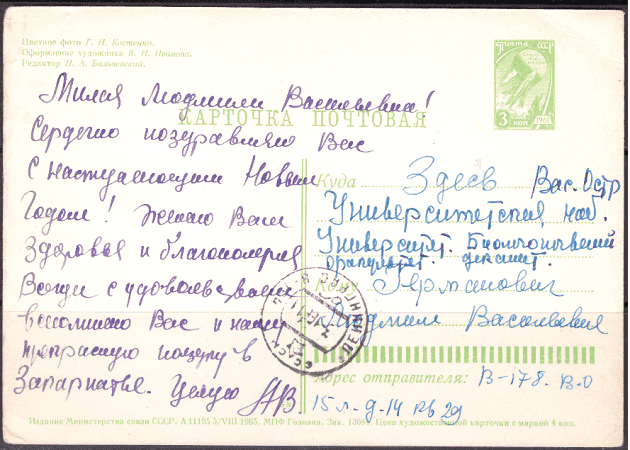 Цветное фото Г. И. Костенко.
Оформление художника В. П. Иванова.
Редактор П. А. Бальчевский.
ПОЧТА СССР
3 КОП. 1961
КАРТОЧКА ПОЧТОВАЯ
Милая Людмила Васильевна!
Сердечно поздравляю Вас
с наступающим Новым
Годом! Желаю Вам
Здоровья и благополучия
Всегда с удовольствием
вспоминаю Вас и нашу
прекрасную поездку в
Закарпатье. Целую
Куда Здесь Вас. Остр
Университетская наб.
Университет. Биологический
факультет.
Кому Германович
Людмиле Васильевне
ЛЕНИНГРАД
Адрес отправителя: В-178. В.О
15 л. д-14 кв 29
Издание Министерства связи СССР. А 11105 5/VIII 1965. МПФ Гознака. Зак. Цена художественной карточки с маркой 4 коп.